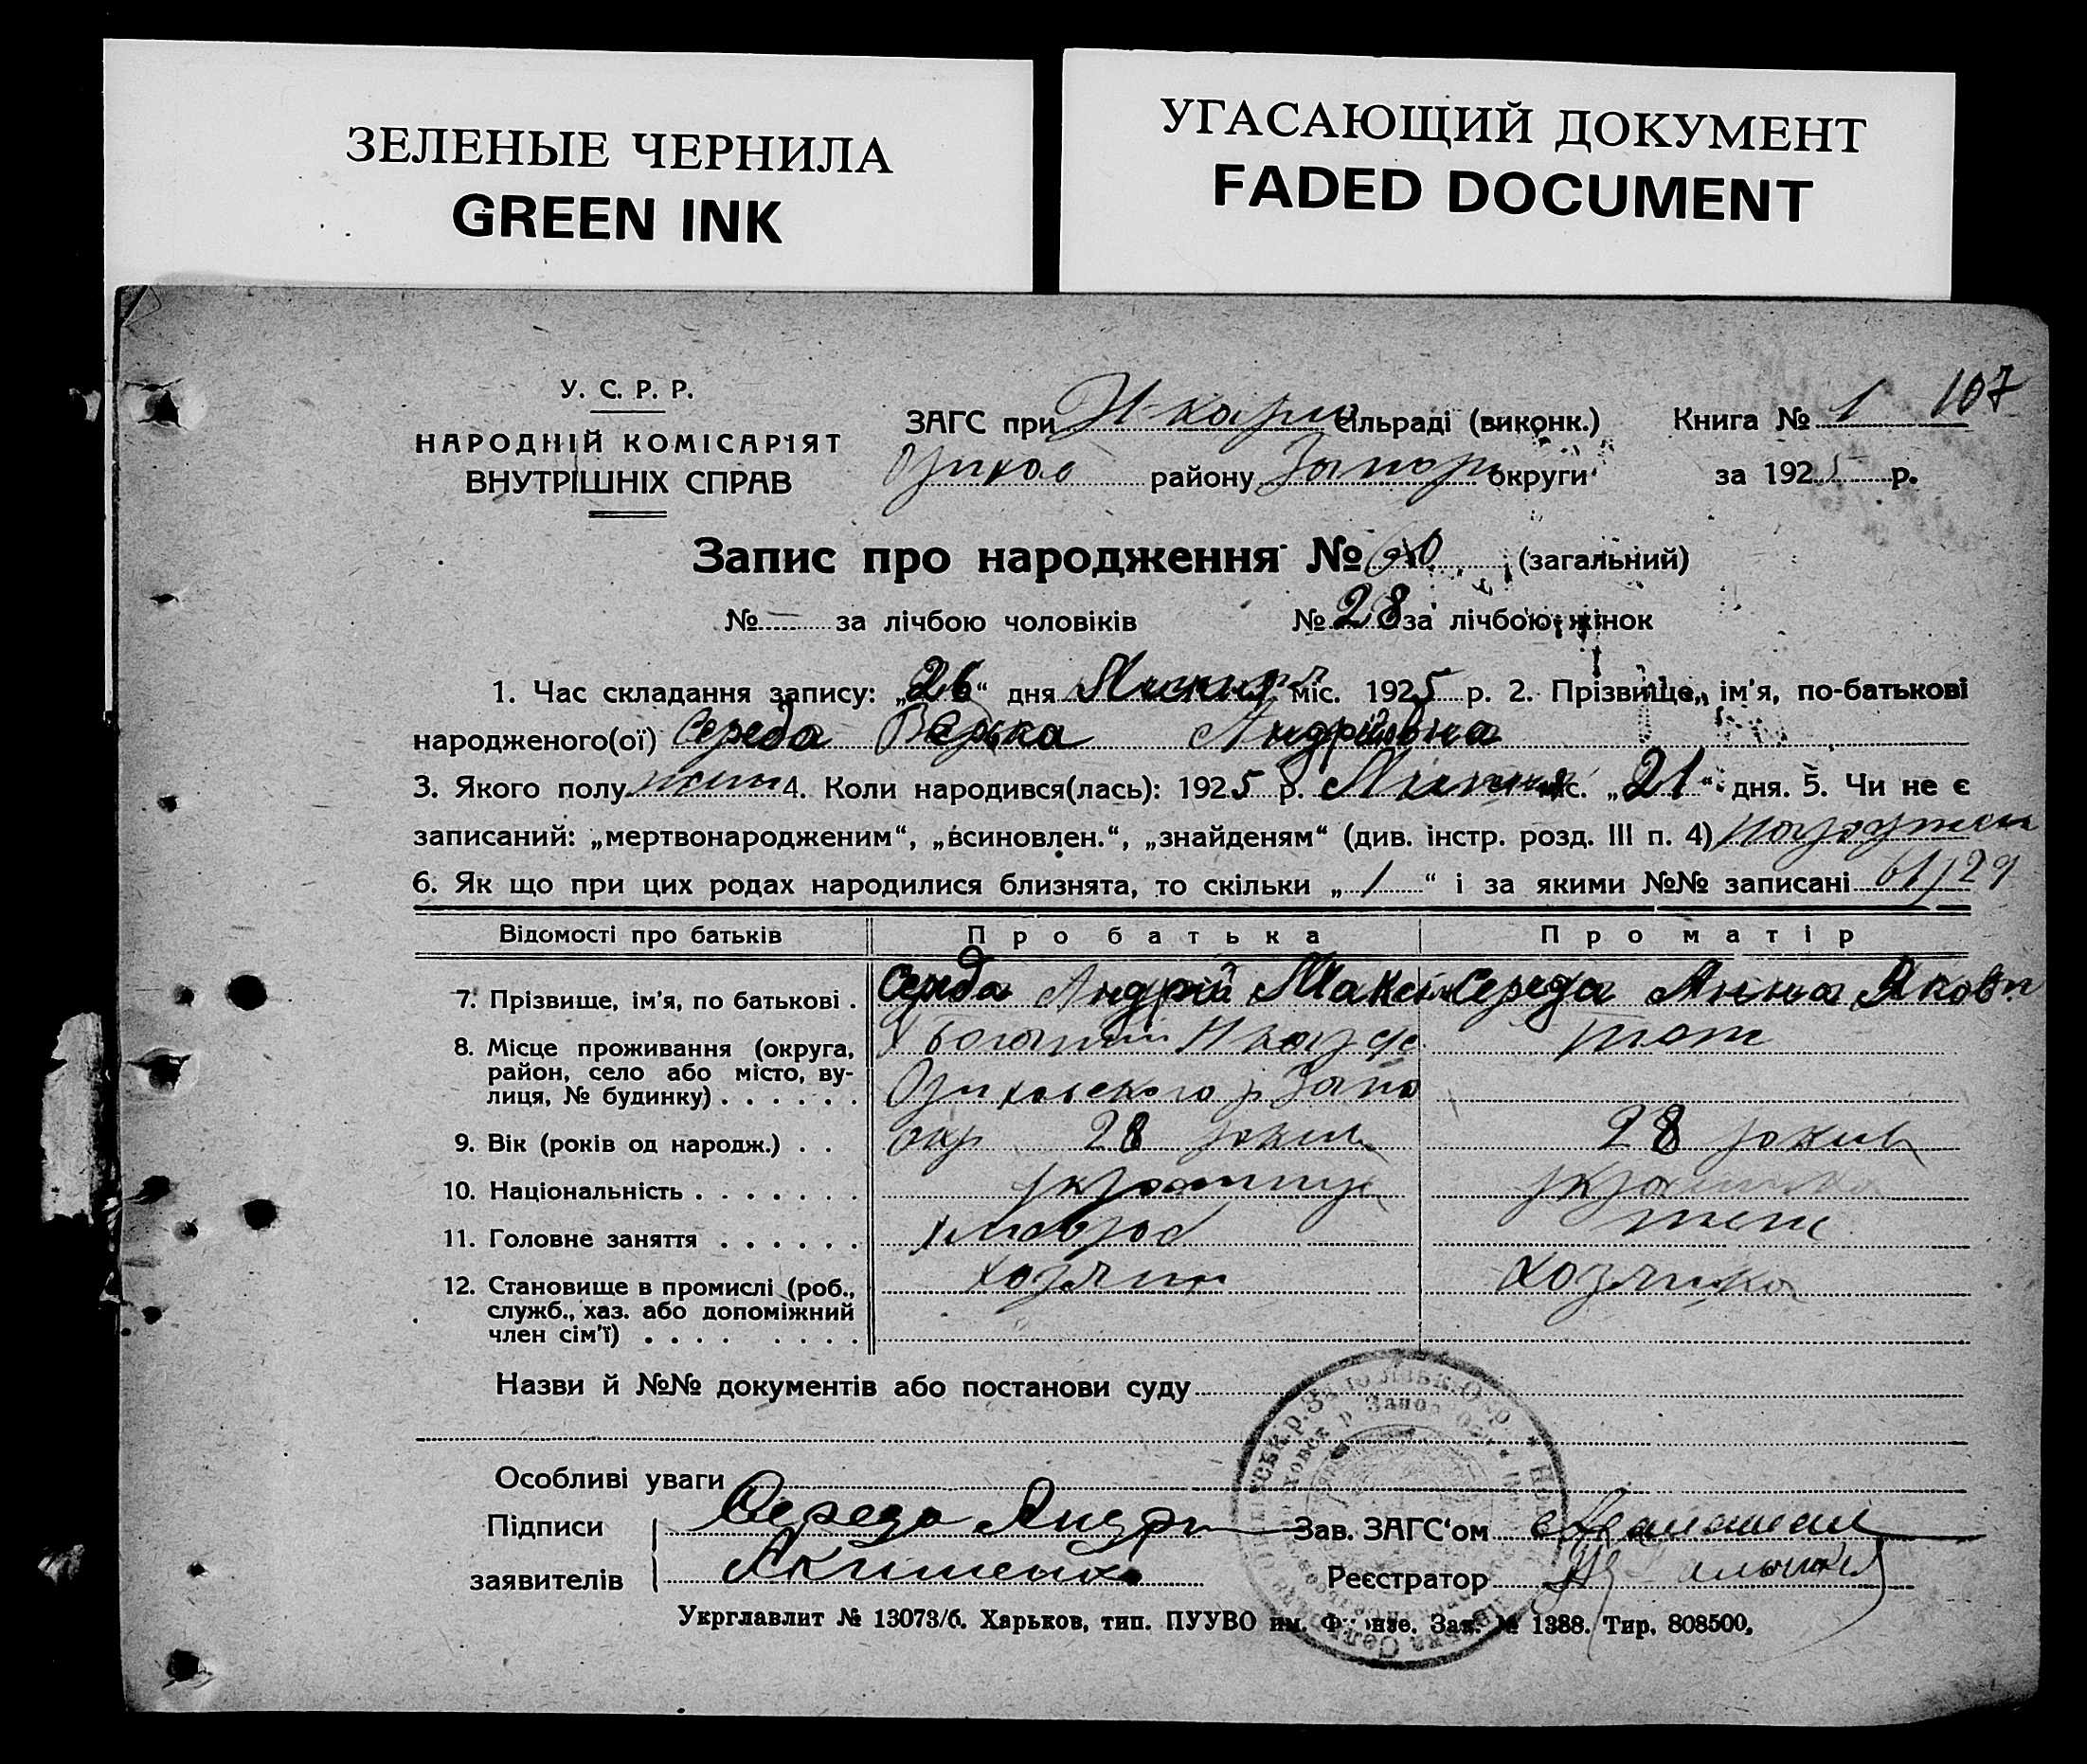 ЗЕЛЕНЫЕ ЧЕРНИЛА
GREEN INK
УГАСАЮЩИЙ ДОКУМЕНТ
FADED DOCUMENT
У. С. Р. Р.
НАРОДНІЙ КОМІСАРІЯТ
ВНУТРІШНІХ СПРАВ
ЗАГС при сільраді (виконк.)
району Запор округи
Книга № 1 107
за 1925 р.
Запис про народження № (загальний)
№ — за лічбою чоловіків № 28 за лічбою жінок
1. Час складання запису: „26“ дня міс. 1925 р. 2. Прізвище, ім’я, по-батькові
народженого(ої) Середа Вєрка Андріївна
3. Якого полу жін 4. Коли народився(лась): 1925 р. міс. „21“ дня. 5. Чи не є
записаний: „мертвонародженим“, „всиновлен.“, „знайденям“ (див. інстр. розд. III п. 4)
6. Як що при цих родах народилися близнята, то скільки „1“ і за якими №№ записані 61/29
Відомості про батьків Про батька Про матір
7. Прізвище, ім’я, по батькові . Середа Андрій Максим Середа Анна Яковл
8. Місце проживання (округа,
район, село або місто, ву-
лиця, № будинку) . . . . . . Оріховського р Запо
9. Вік (років од народж.) . . окр 28 років 28 років
10. Національність . . . . . . . українка
11. Головне заняття . . . . . . хлібороб
12. Становище в промислі (роб.,
служб., хаз. або допоміжний
член сім’ї) . . . . . . . . хозяин хозяйка
Назви й №№ документів або постанови суду
Особливі уваги
Підписи Середа Андр Зав. ЗАГС‘ом
заявителів Якименко Реєстратор
Укрглавлит № 13073/б. Харьков, тип. ПУУВО им. Фрунзе. Зак. № 1388. Тир. 808500.